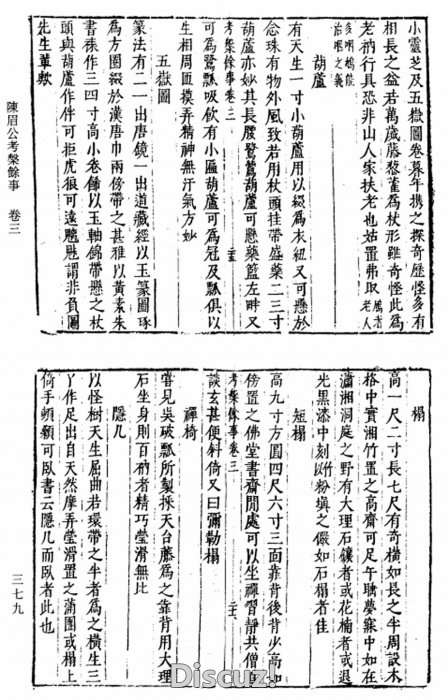 小靈芝及五嶽圖卷暮年攜之探奇歷怪多有
相長之益若萬歲藤藜藿為杖形雖奇怪此為
老衲行具恐非山人家扶老也姑置弗取
葫蘆
有天生一寸小葫蘆用以綴為衣紐又可懸於
念珠有物外風致若用杖頭挂帶盛藥二三寸
葫蘆亦妙其長腰鷺鶿葫蘆可懸藥籃左畔又
考槃餘事卷三
可為鷺瓢吸飲有小匾葫蘆可為冠及瓢俱以
生相周匝摸弄精神無汗氣方妙
五嶽圖
篆法有二一出唐鏡一出道藏經以玉篆圖琢
為方圓綴於漢唐巾兩傍帶之甚雅以黃素朱
書裱作三四寸高小卷飾以玉軸錦帶懸之杖
頭與葫蘆作伴可拒虎狼可遠魑魅謂非負圖
先生輩歟
陳眉公考槃餘事 卷三
榻
高一尺二寸長七尺有奇橫如長之半周設木
格中實湘竹置之高齋可足午睡夢寐中如在
瀟湘洞庭之野有大理石鑲者或花楠者或退
光黑漆中刻竹以粉填之儼如石榻者佳
短榻
高九寸方圓四尺六寸三面靠背後背少高如
傍置之佛堂書齋閒處可以坐禪習靜共僧
考槃餘事卷三
談玄甚便斜倚又曰彌勒榻
禪椅
嘗見吳破瓢所製採天台藤為之靠背用大理
石坐身則百衲者精巧瑩滑無比
隱几
以怪樹天生屈曲若環帶之半者為之橫生三
丫作足出自天然摩弄瑩滑置之蒲團或榻上
倚手頓顙可臥書云隱几而臥者此也
三七九
Discuz!